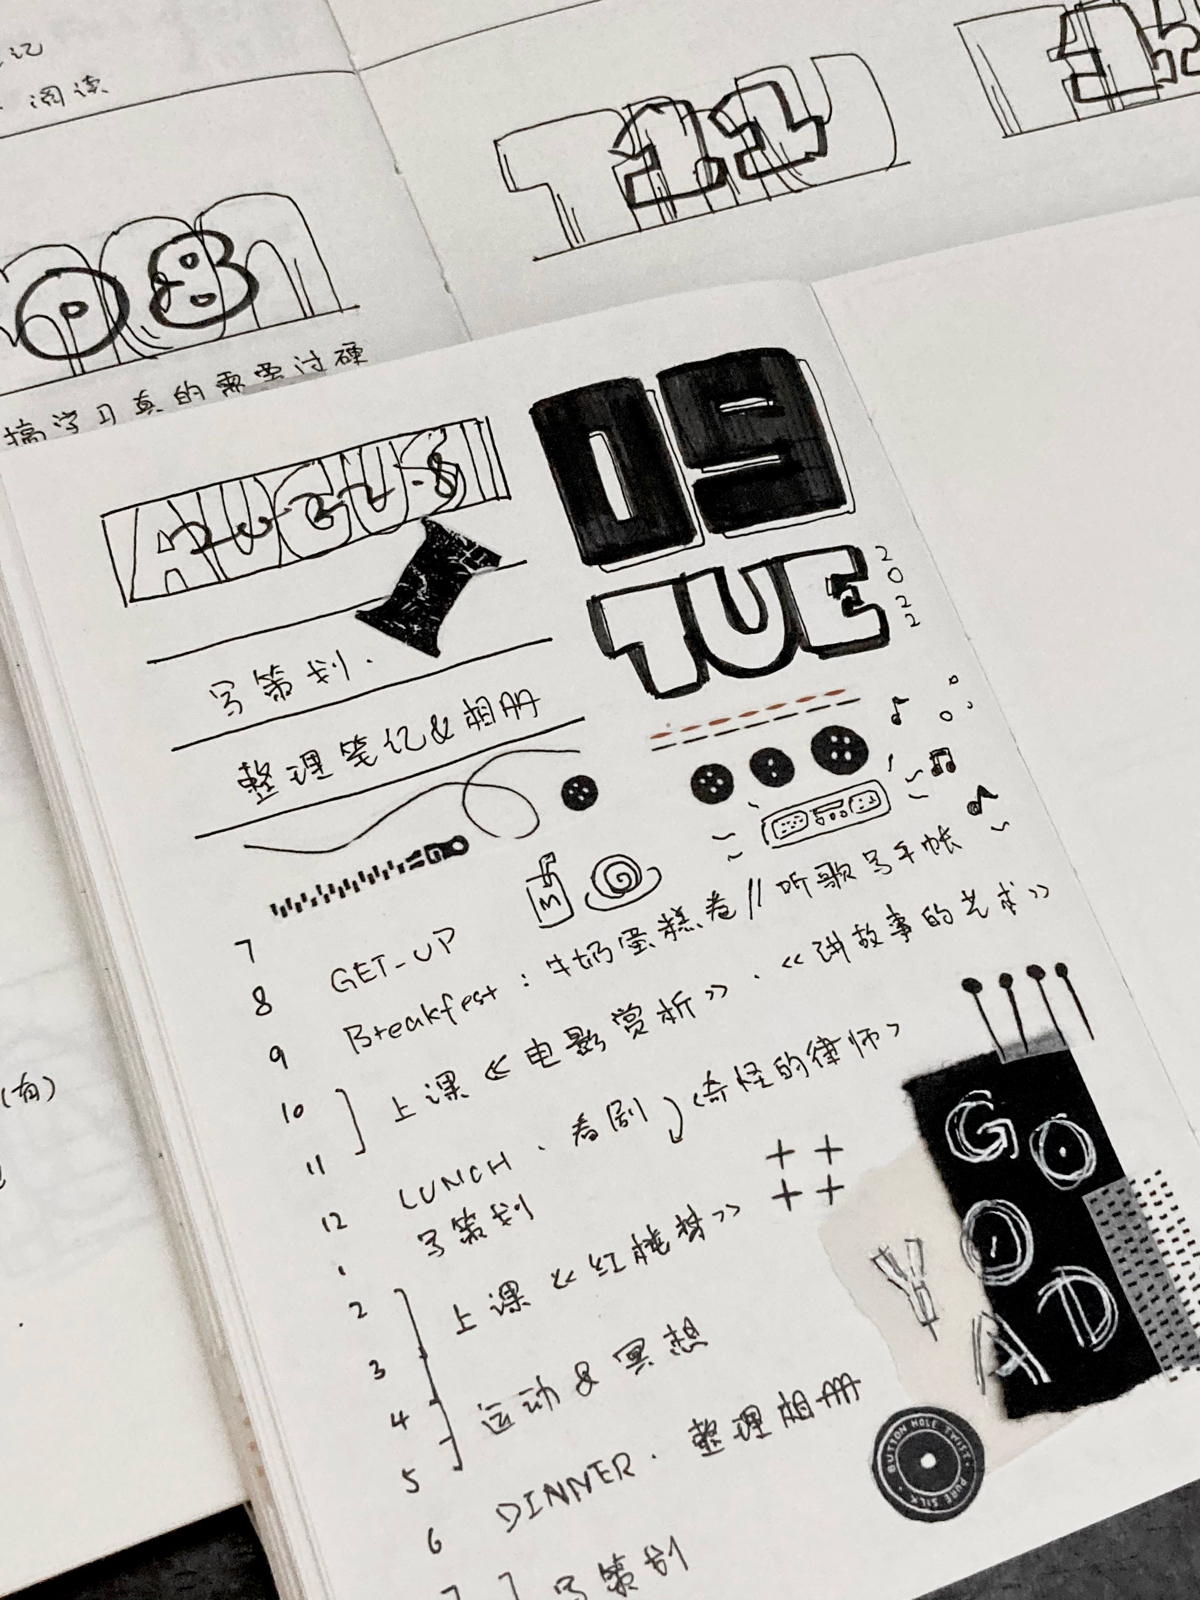 记
阅读
08
n
搞学习真的需要过硬
T
11
U
AUGUST
August 8
09
TUE
2022
写策划.
整理笔记&相册
M
7
8 GET-UP
9 Breakfest: 牛奶蛋糕卷 // 听歌写手帐
10 上课《电影赏析》.《讲故事的艺术》
11
12 LUNCH. 看剧 (奇怪的律师)
1 写策划
2 上课《红楼梦》
3
4 运动&冥想
5
6 DINNER. 整理相册
7 写策划
GO
OD
YA
BUTTON HOLE TWIST. PURE SILK.
(有)